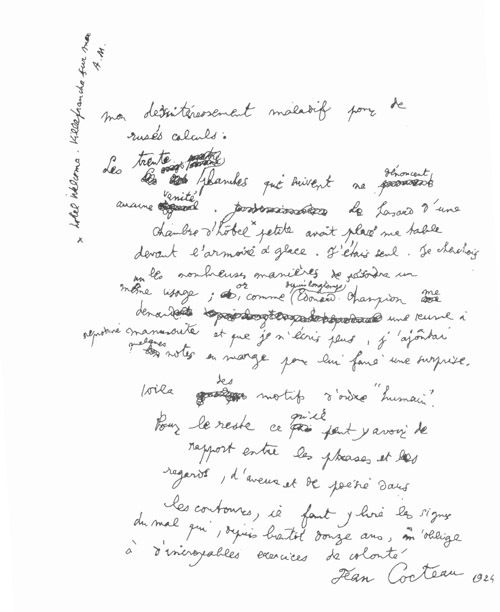 mon désintéressement maladif pour de
rusés calculs.
Les trente
planches qui suivent ne dénoncent
aucune vanité. Le hasard d'une
chambre d'hôtel * petite avait placé ma table
devant l'armoire à glace. J'étais seul. Je cherchais
les nombreuses manières de résoudre un
même visage ; or, comme Edouard Champion me
une œuvre à
reproduire manuscrite et que je n'écris plus, j'ajoutai
quelques notes en marge pour lui faire une surprise.
Voilà des motifs d'ordre "humain".
Pour le reste ce qu'il peut y avoir de
rapport entre les phrases et les
regards, d'aveux et de poésie dans
les contours, il faut y lire les signes
du mal qui, depuis bientôt douze ans, m'oblige
à d'incroyables exercices de volonté
Jean Cocteau 1924
* Hotel Welcome. Villefranche sur mer
A. M.